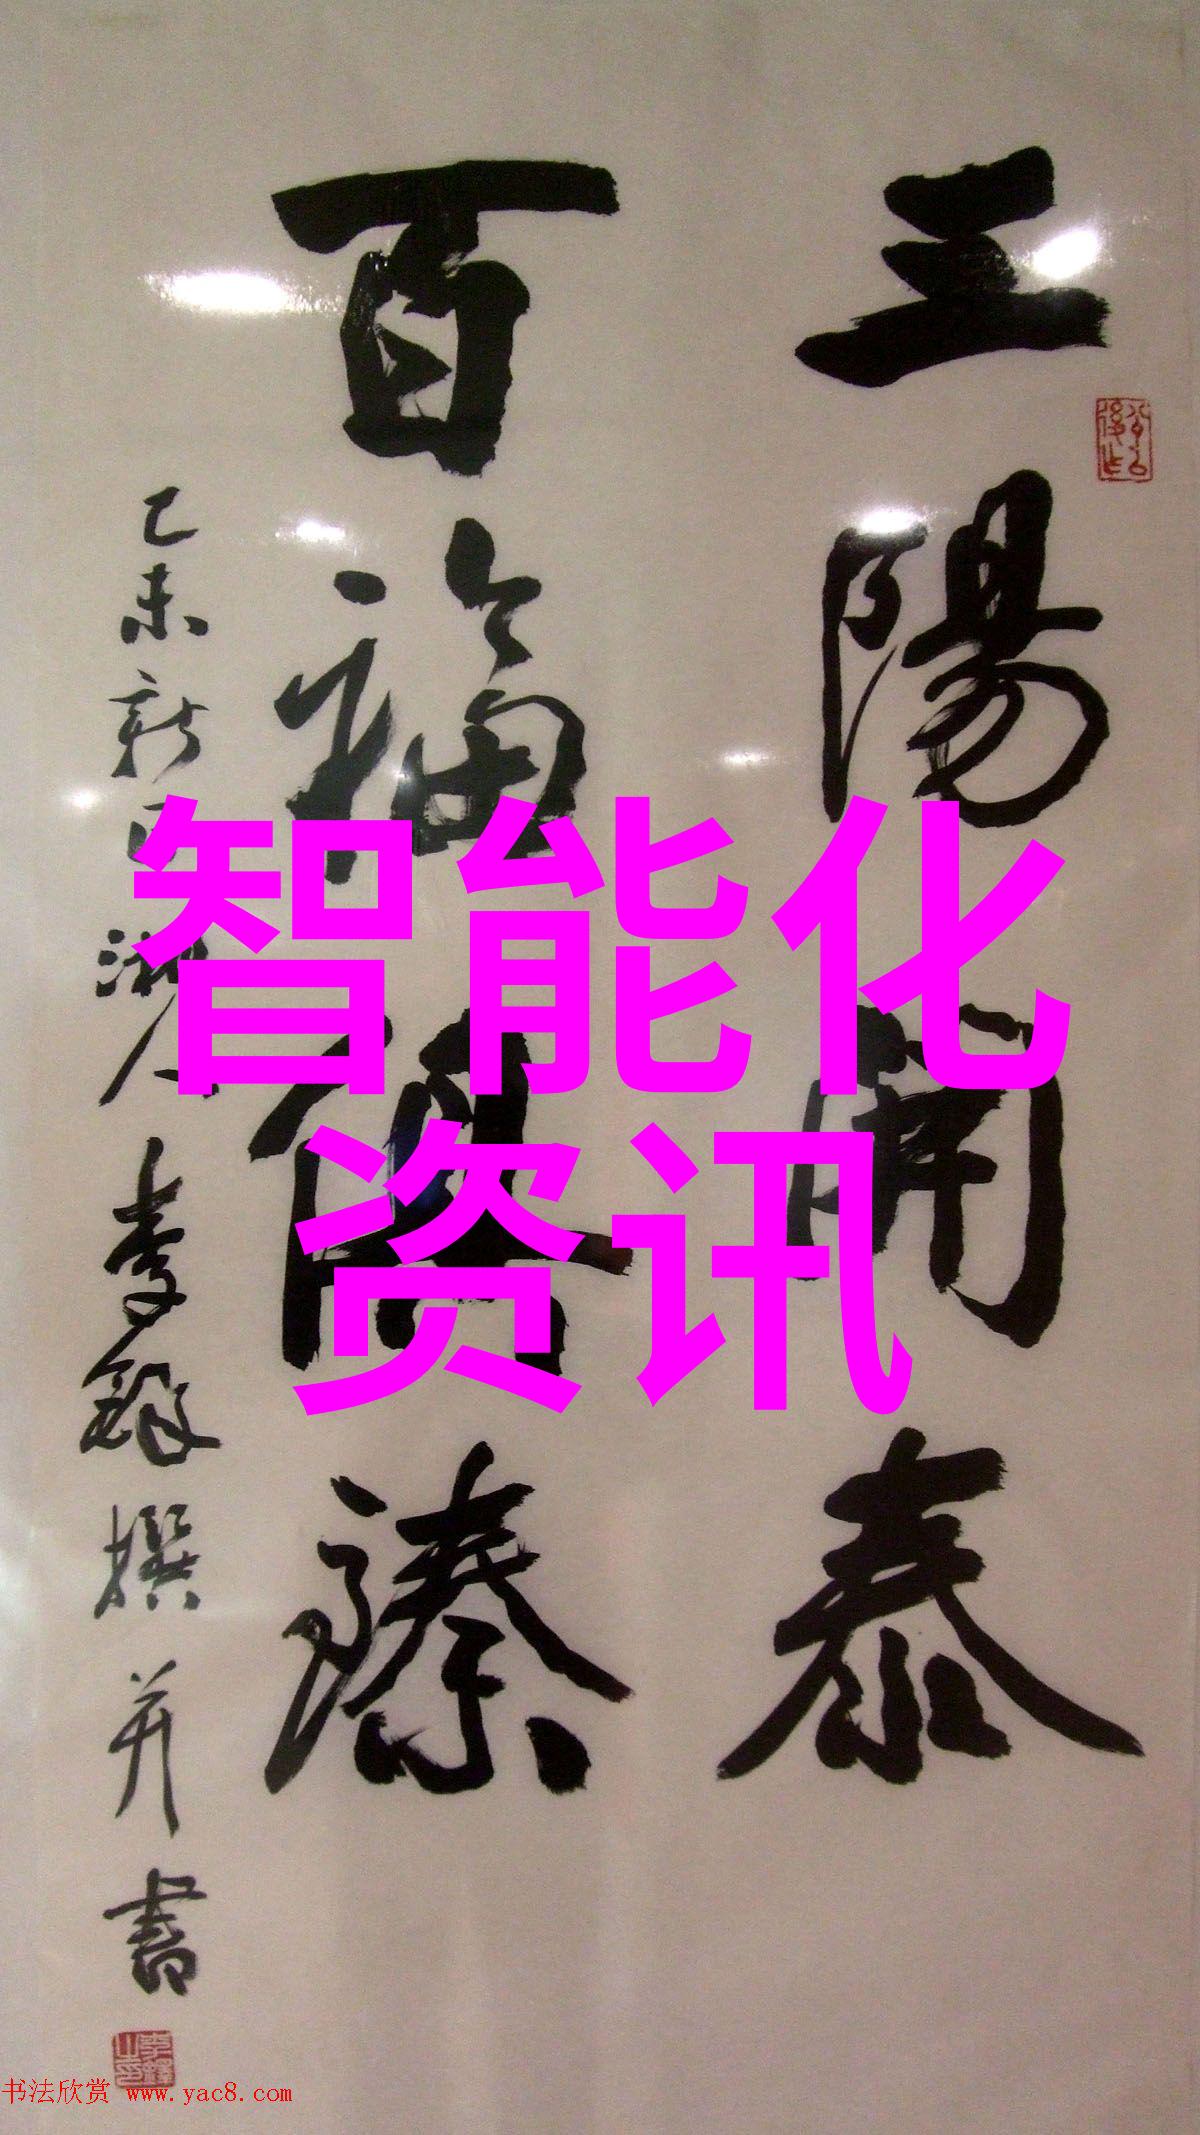 三陽開泰
百福臻
乙未新湘人李鐸撰并書
智能化
资讯
书法欣赏 www.yac8.com